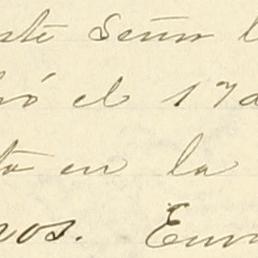 este Señor
ió el 17 d
ta en la
nos. Enr